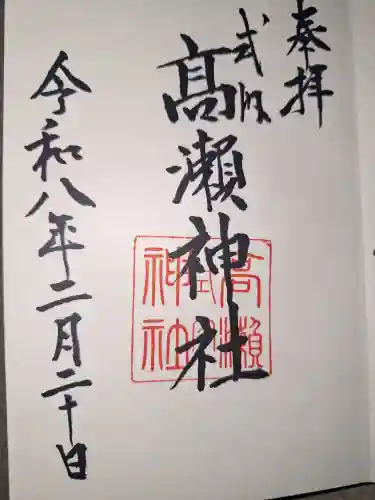 奉拝
式内
髙瀬神社
令和八年二月二十日
高瀬
式内
神社